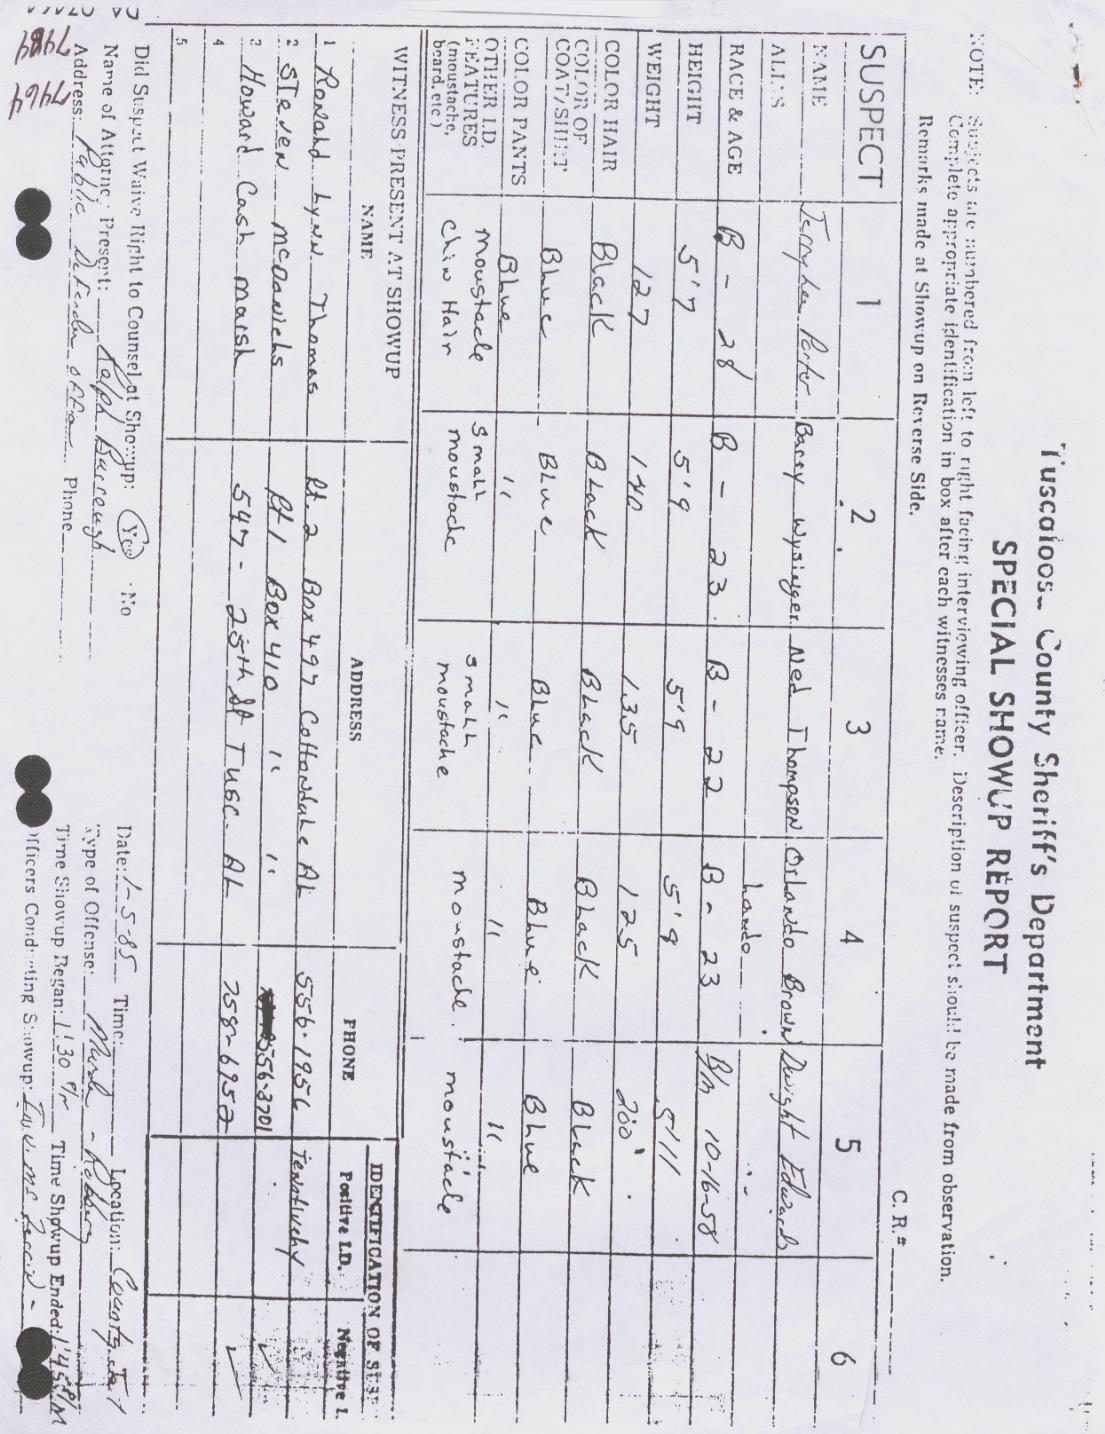 Tuscaloosa County Sheriff's Department
SPECIAL SHOWUP REPORT
C. R.#
NOTE: Subjects are numbered from left to right facing interviewing officer. Description of suspect should be made from observation.
Complete appropriate identification in box after each witnesses name.
Remarks made at Showup on Reverse Side.
SUSPECT 1 2 3 4 5 6
NAME Terry Lee Porter Barry Wysinger Ned Thompson Orlando Brown Dwight Edwards
ALIAS Lando
RACE & AGE B - 28 B - 23 B - 22 B - 23 B/m 10-16-58
HEIGHT 5'7 5'9 5'9 5'9 5'11
WEIGHT 127 140 135 125 200
COLOR HAIR Black Black Black Black Black
COLOR OF COAT/SHIRT Blue Blue Blue Blue Blue
COLOR PANTS Blue " " " "
OTHER I.D. FEATURES (moustache, beard, etc) moustache Chin Hair Small moustache Small moustache moustache moustache
WITNESS PRESENT AT SHOWUP
IDENTIFICATION OF SUSP
NAME ADDRESS PHONE Positive I.D. Negative I.
1 Ronald Lynn Thomas Rt. 2 Box 497 Cottondale AL 556-1956 Tenativehy
2 Steven McDaniels Rt 1 Box 410 " " 556-3701 ✓
3 Howard Cash Marsh 547 - 25th St Tusc. AL 758-6952 ✓
4
5
Did Suspect Waive Right to Counsel at Showup: Yes No
Date: 1-5-85 Time: Location: County Jail
Name of Attorney Present: Ralph Burrough
Type of Offense: Murder - Robbery
Address: Public Defender Office Phone
Time Showup Began: 1:30 P/m Time Showup Ended: 1:45 P/M
Officers Conducting Showup: Inv.